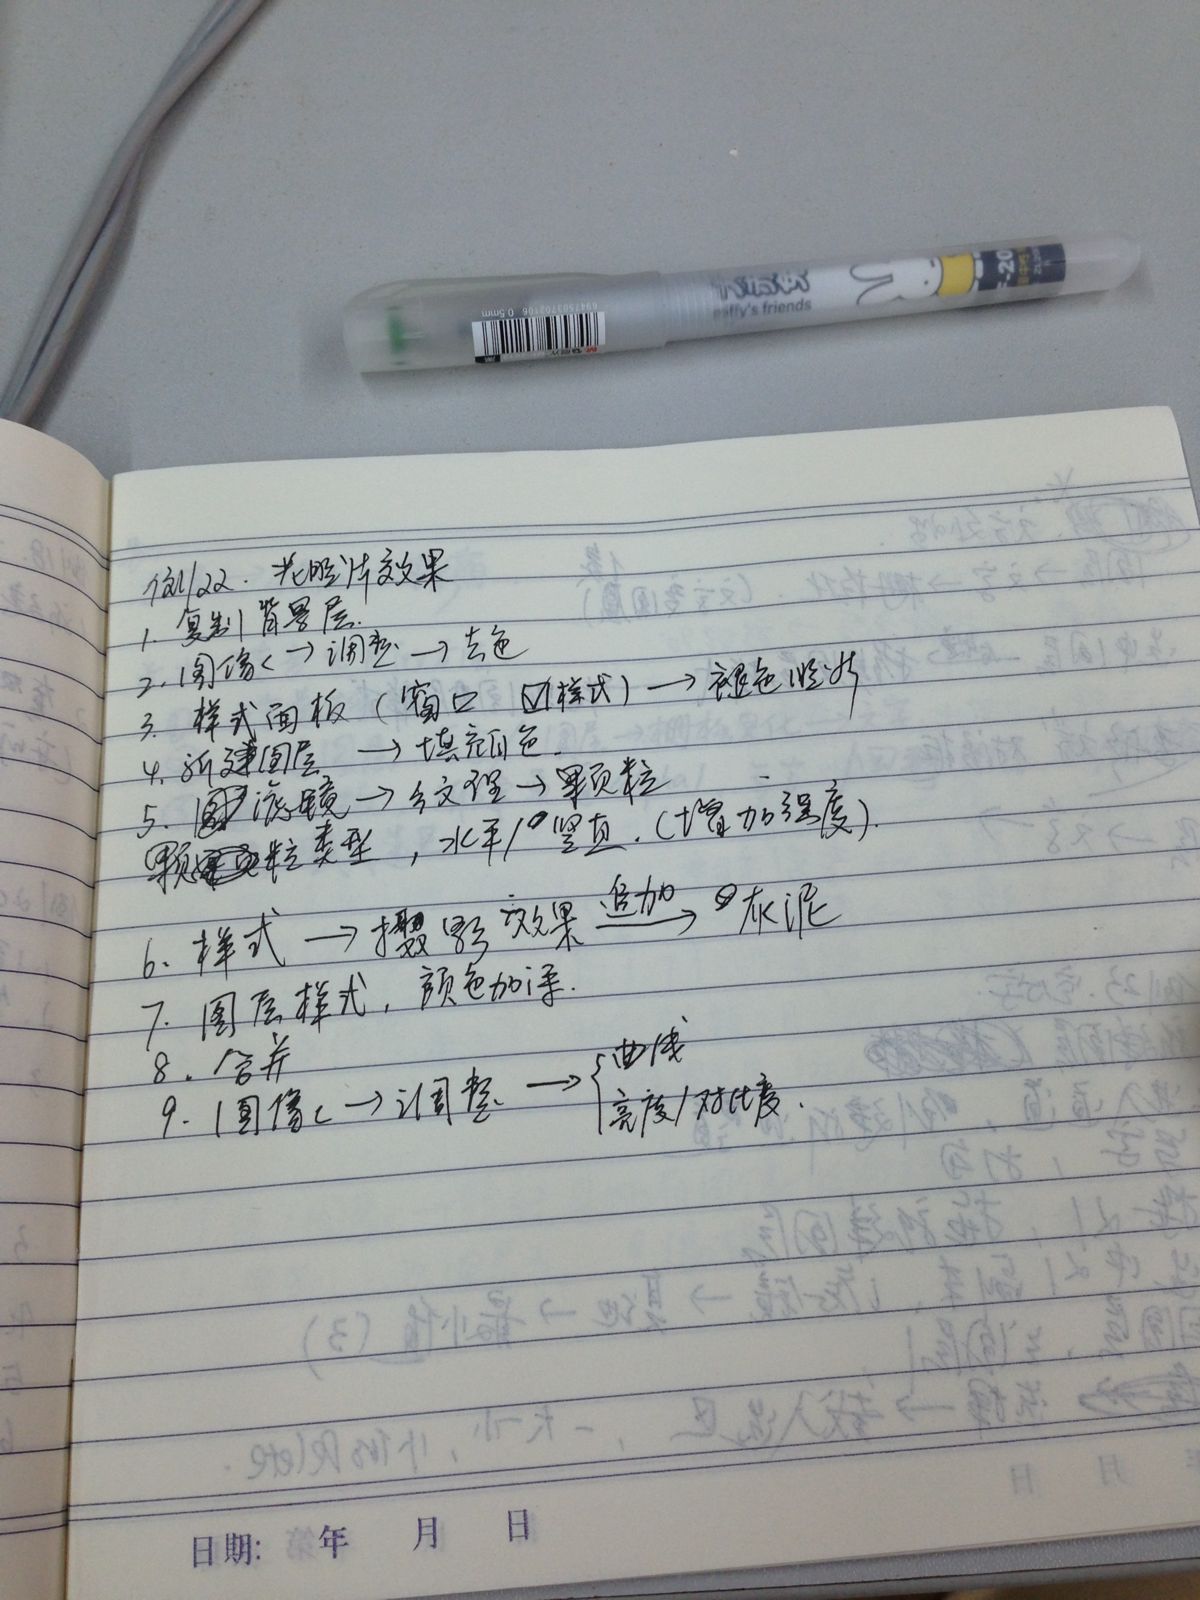 6947503702106 0.5mm
affy's friends
例22. 光照片效果
1. 复制背景层.
2. 图像 → 调整 → 去色
3. 样式面板 (窗口 ☑样式) → 褪色照片
4. 新建图层 → 填充颜色.
5. 滤镜 → 纹理 → 颗粒
颗粒类型, 水平/竖直. (增加强度).
6. 样式 → 摄影效果 追加→ 灰泥
7. 图层样式, 颜色加深.
8. 合并
9. 图像 → 调整 → { 曲线
亮度/对比度.
日期: 年 月 日